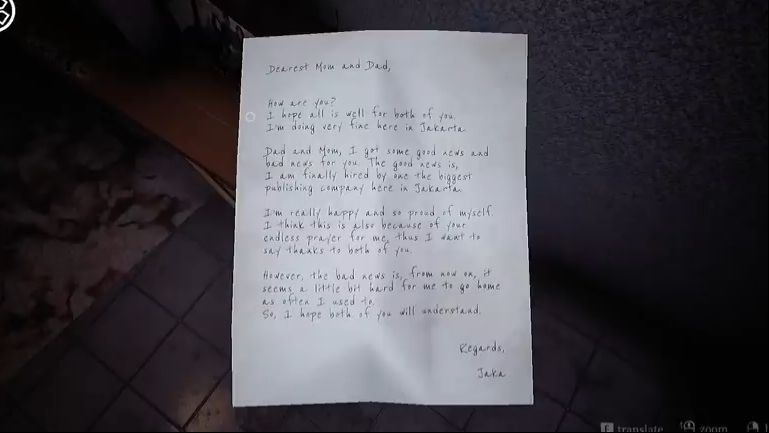 Dearest Mom and Dad,
How are you?
I hope all is well for both of you.
I'm doing very fine here in Jakarta.
Dad and Mom, I got some good news and
bad news for you. The good news is,
I am finally hired by one the biggest
publishing company here in Jakarta.
I'm really happy and so proud of myself.
I think this is also because of your
endless prayer for me, thus I want to
say thanks to both of you.
However, the bad news is, from now on, it
seems a little bit hard for me to go home
as often I used to.
So, I hope both of you will understand.
Regards,
Jaka
F translate zoom